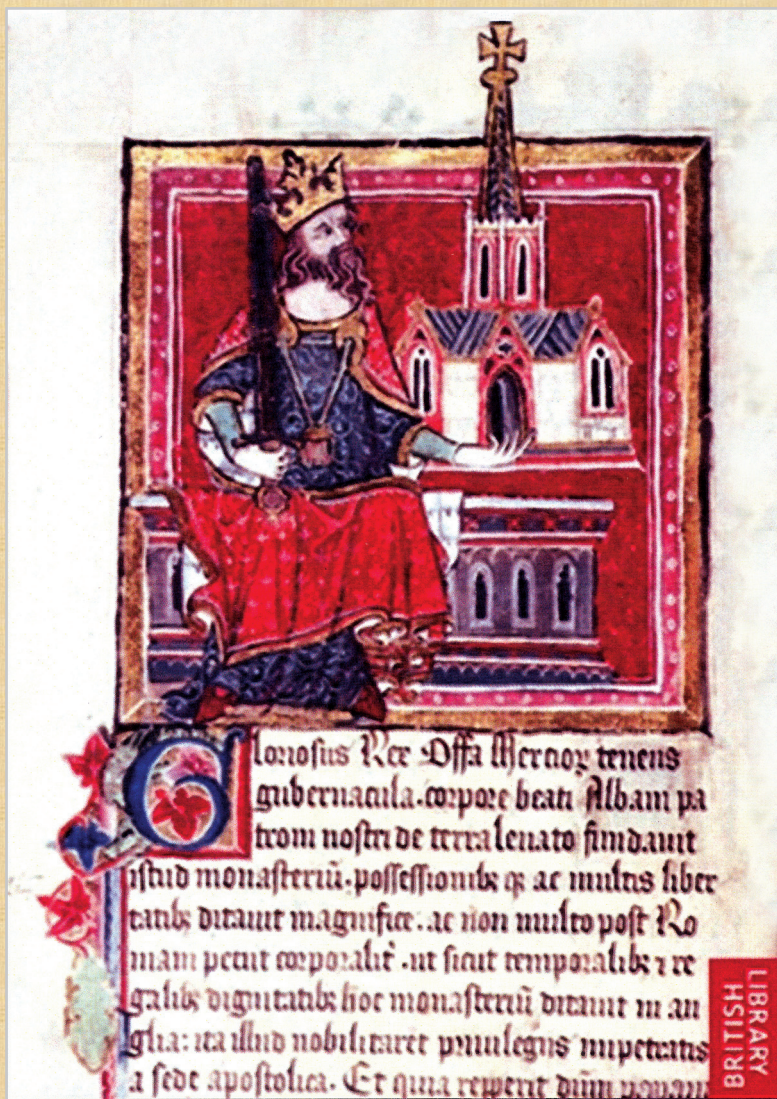 Gloriosus Rex Offa Mercioꝝ tenens
gubernacula. corpore beati Albani pa
troni nostri de terra leuato fundauit
istud monasteriū. possessionibꝫ qꝫ ac multis liber
tatibꝫ ditauit magnifice. ac non multo post Ro
mam petiit corporalit̄. ut sicut temporalibꝫ ⁊ re
galibꝫ dignitatibꝫ hoc monasteriū ditauit in an
glia: ita illud nobilitaret priuilegiis impetratis
a sede apostolica. Et quia repperit dūm papam
BRITISH
LIBRARY